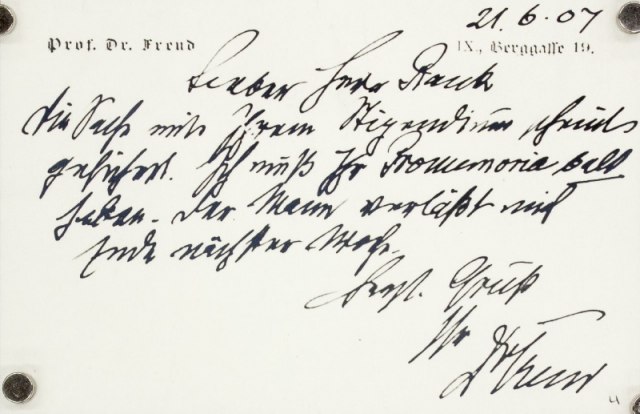 21.6.07
Prof. Dr. Freud
IX., Berggasse 19.
Lieber Herr Rank
Die Sache mit Ihrem Stipendium scheint
gesichert. Ich muß Ihr Promemoria bald
haben. Der Mann verläßt mich
Ende nächster Woche.
Herzl. Gruß
Ihr
Dr Freud